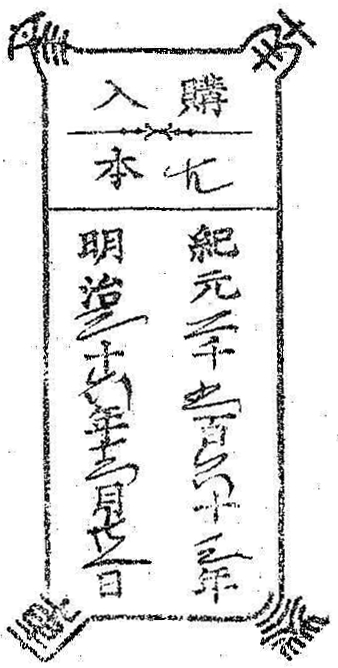 購入
本
紀元二千五百六十三年
明治三十六年十二月廿日